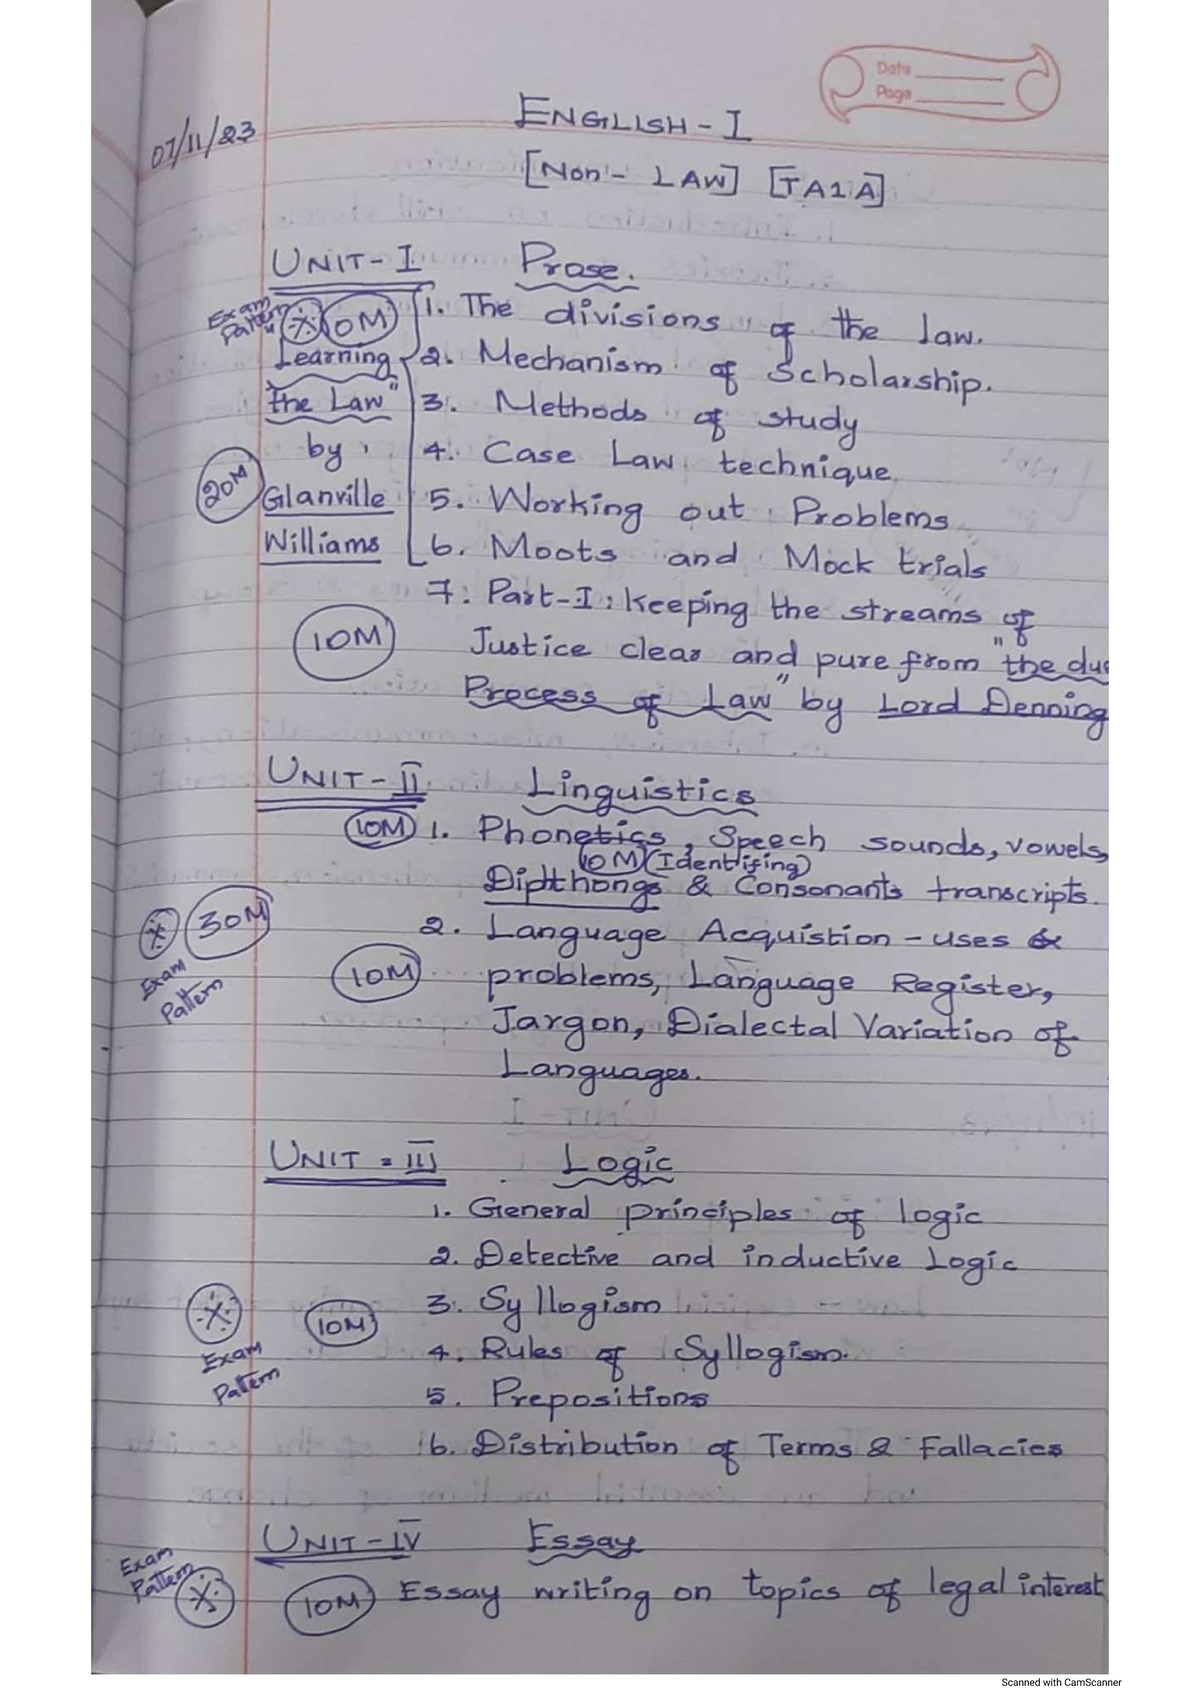 Date
Page
07/11/23
ENGLISH - I
[Non - LAW] [TA1A]
UNIT - I Prose.
Exam Pattern
1. The divisions of the law.
Learning 2. Mechanism of Scholarship.
"the Law" 3. Methods of study
by 4. Case Law technique
20M Glanville 5. Working out Problems
Williams 6. Moots and Mock trials
7. Part-I: Keeping the streams of
10M Justice clear and pure from "the due
Process of Law" by Lord Denning
UNIT - II Linguistics
10M 1. Phonetics, Speech sounds, vowels,
10M (Identifing)
Dipthongs & Consonants transcripts.
30M 2. Language Acquistion - uses &
Exam Pattern
10M problems, Language Register,
Jargon, Dialectal Variation of
Languages.
UNIT = III Logic
1. General principles of logic
2. Detective and inductive Logic
10M 3. Syllogism
Exam Pattern
4. Rules of Syllogism.
5. Prepositions
6. Distribution of Terms & Fallacies
UNIT - IV Essay
Exam Pattern
10M Essay writing on topics of legal interest
Scanned with CamScanner